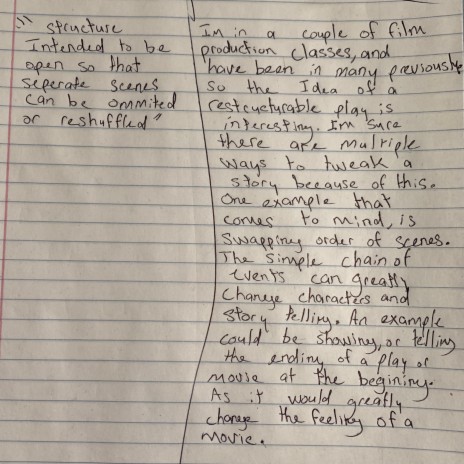 " structure
Intended to be
open so that
seperate scenes
can be ommited
or reshuffled"
Im in a couple of film
production classes, and
have been in many previously
so the Idea of a
restructurable play is
interesting. Im sure
there are multiple
ways to tweak a
story because of this.
One example that
comes to mind, is
Swapping order of scenes.
The simple chain of
events can greatly
change characters and
story telling. An example
could be showing, or telling
the ending of a play or
movie at the begining.
As it would greatly
change the feeling of a
movie.